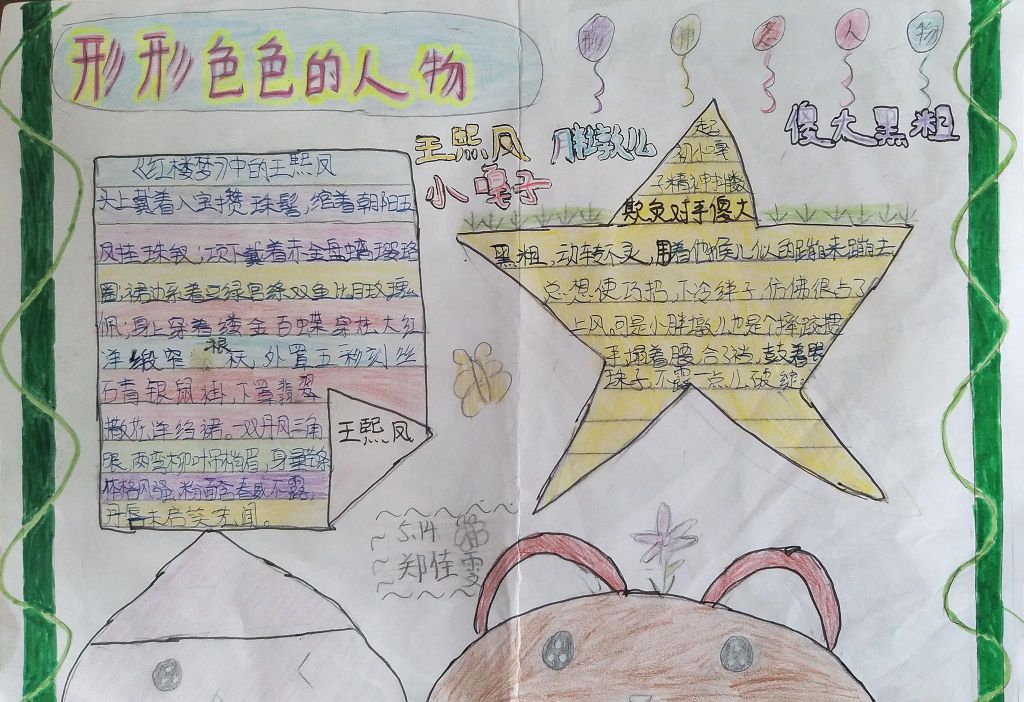 形形色色的人物
形 神 态 人 物
王熙凤 胖墩儿 傻大黑粗
小嘎子
《红楼梦》中的王熙凤
头上戴着八宝攒珠髻,绾着朝阳五
凤挂珠钗;项下戴着赤金盘螭璎珞
圈;裙边系着豆绿宫绦双鱼比目玫瑰
佩;身上穿着缕金百蝶穿花大红
洋缎窄裉袄,外置五彩刻丝
石青银鼠褂,下罩翡翠
撒花洋绉裙。一双丹凤三角
眼,两弯柳叶吊梢眉,身量苗条
体格风骚,粉面含春威不露,
丹唇未启笑先闻。
王熙凤
起
初小嘎
子精神抖擞
欺负对手傻大
黑粗,动转不灵,围着他猴儿似的蹦来蹦去
总想使巧招,下冷绊子,仿佛很占了
上风。可是小胖墩儿也是个摔跤惯
手,塌着腰,合了裆,鼓着眼
珠子,不露一点儿破绽。
5.14
郑佳雯